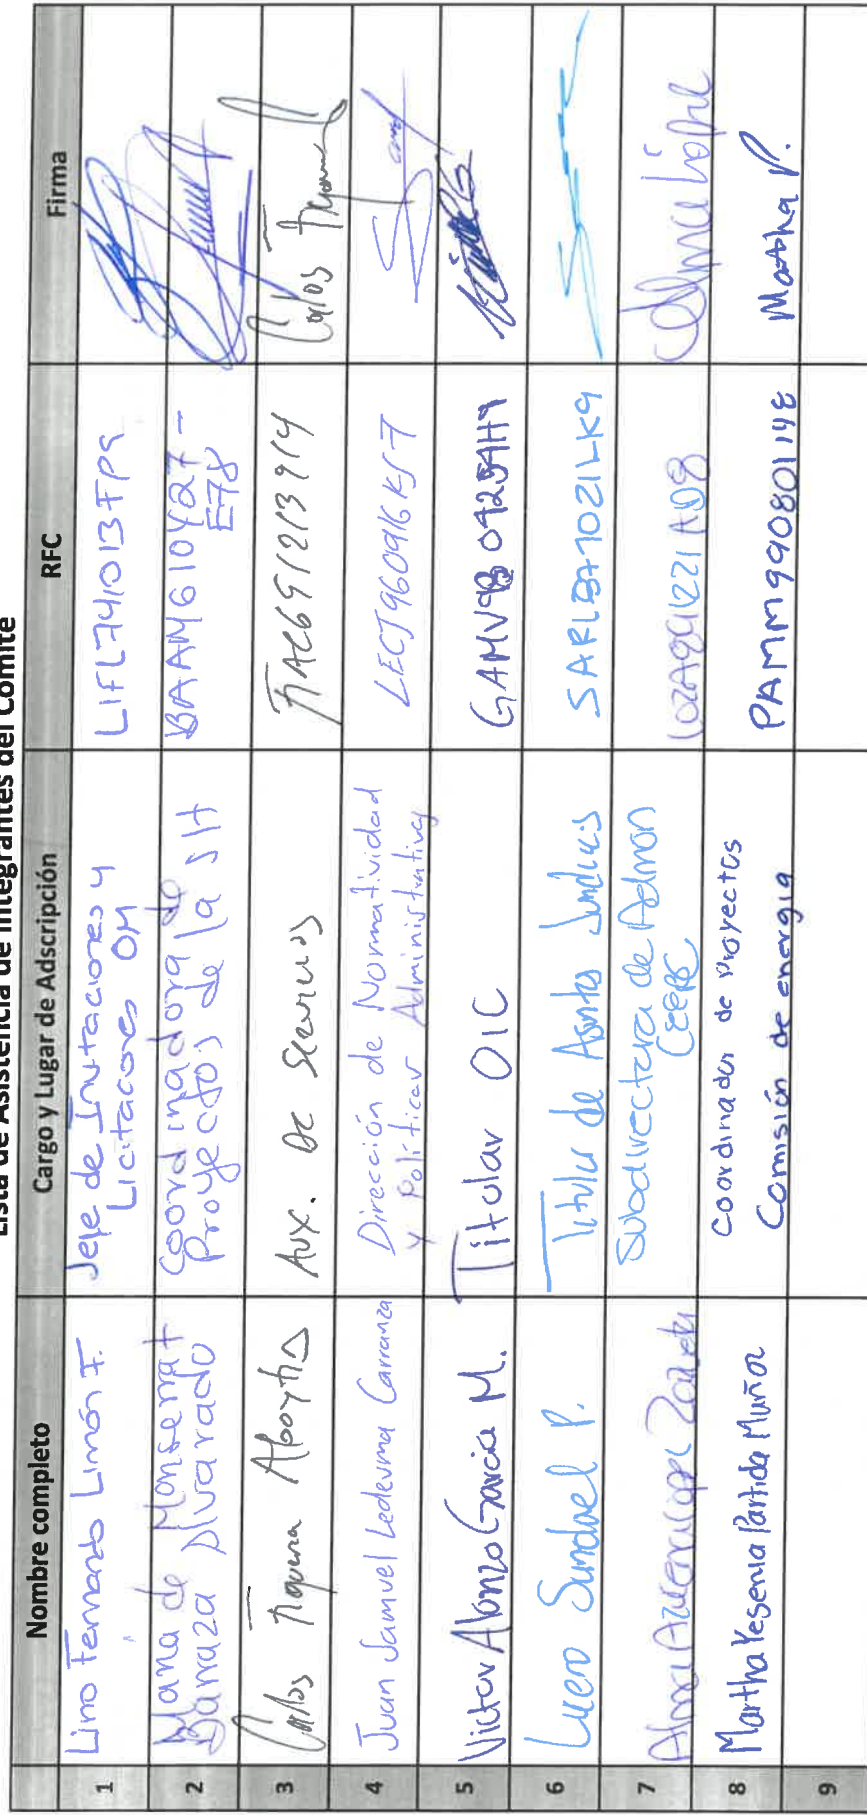 Lista de Asistencia de Integrantes del Comité
Nombre completo
Cargo y Lugar de Adscripción
RFC
Firma
1
Lino Fernando Limón F.
Jefe de Invitaciones y
Licitaciones OM
LIFL741013FP9
2
Maria de Monserrat
Barraza Alvarado
Coordinadora de
Proyectos de la SH
BAAM610427-
E78
3
Carlos Aboytia
Aux. De Servicios
Carlos
4
Juan Samuel Ledesma Carranza
Dirección de Normatividad
y Politicas Administrativas
LECJ960916KS7
5
Victor Alonzo Garcia M.
Titular OIC
6
Lucero Sandoval P.
Titular de Asuntos Juridicos
7
Alma Azucena Lopez Zazueta
Subdirectora de Admon
LOZA841221AD8
Alma Lopez
8
Martha Yesenia Partida Muñoz
Coordinador de Proyectos
Comisión de energia
PAMM990801148
Martha P.
9